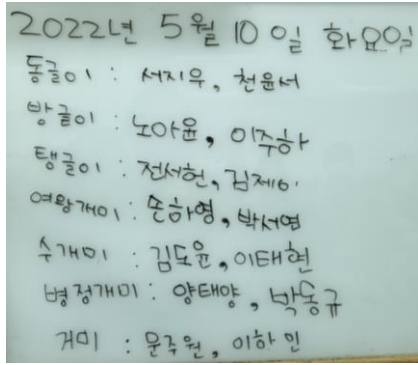 2022년 5월 10일 화요일
동글이 : 서지우, 천윤서
방글이 : 노아윤, 이주하
탱글이 : 전서헌,
여왕개미 : 손하영, 박서영
수개미 : 김도윤, 이태현
병정개미 : 양태양, 박동규
거미 : 문주원, 이하인